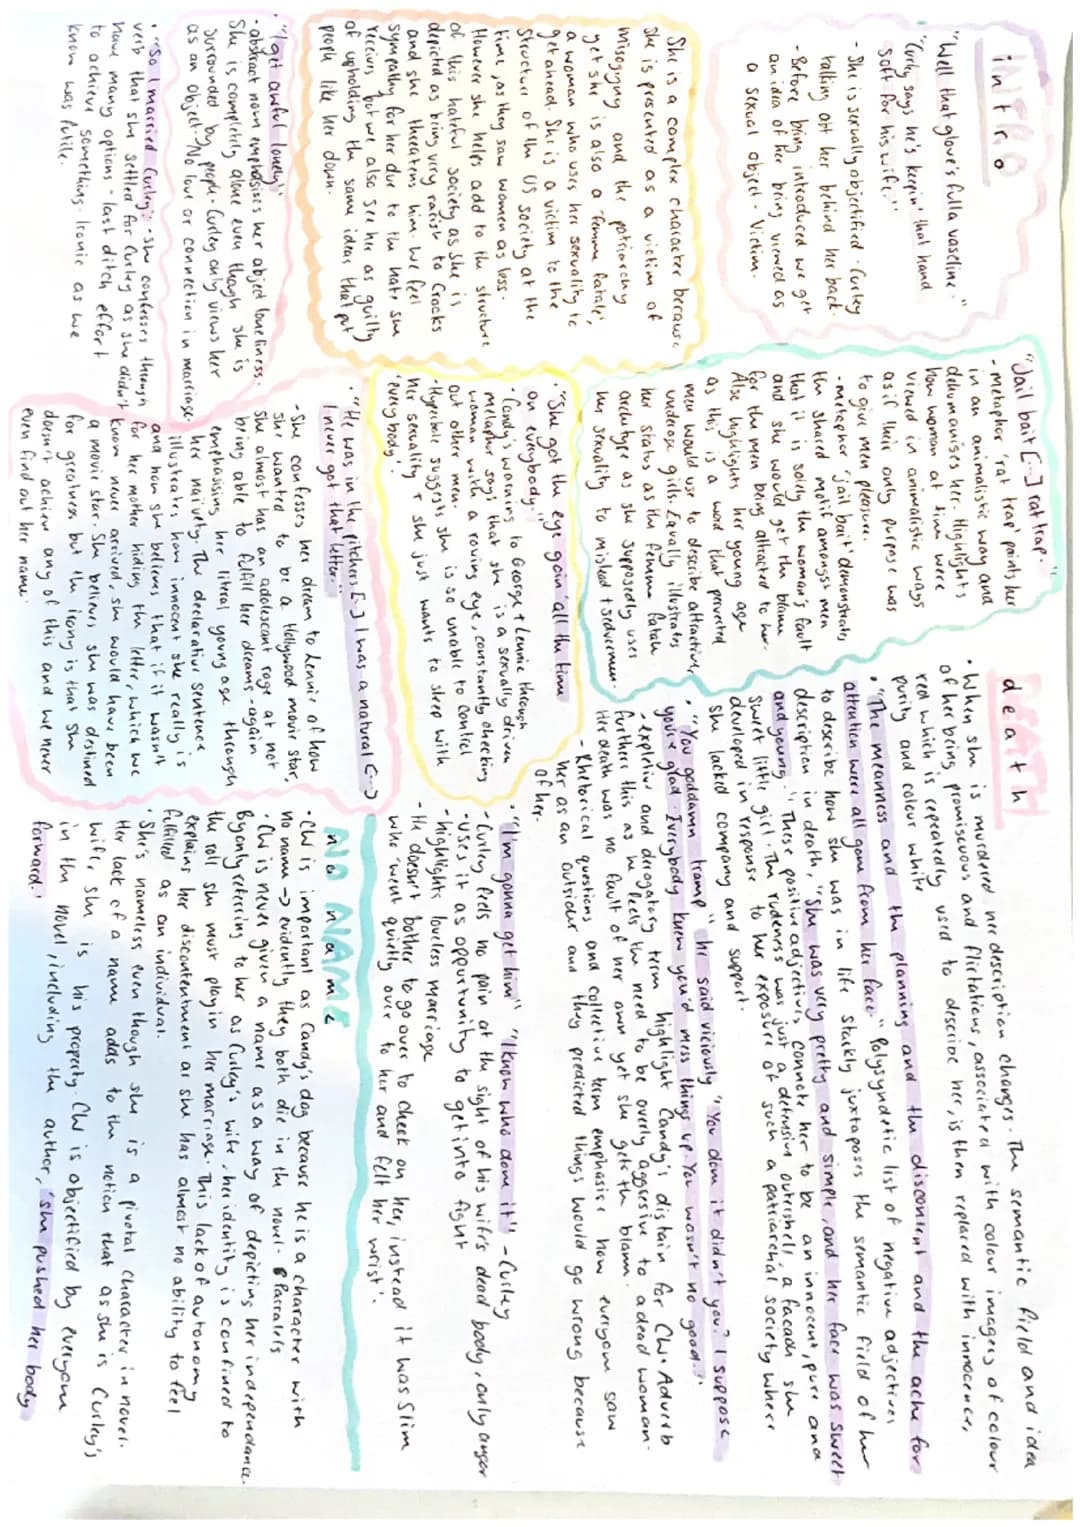 INTRO
intro
"Well that glove's fulla vaseline."
"Curley says he's keepin' that hand
soft for his wife."
- She is sexually objectified. Curley
talking abt her behind her back.
- Before being introduced we get
an idea of her being viewed as
a sexual object - Victim.
She is a complex character because
she is presented as a victim of
misogyny and the patriarchy
yet she is also a 'femme fatale',
a woman who uses her sexuality to
get ahead. She is a victim to the
structure of the US society at the
time, as they saw women as less.
However she helps add to the structure
of this hateful society as she is
depicted as being very racist to Crooks
and she threatens him. We feel
sympathy for her due to the hate she
receives but we also see her as guilty
of upholding the same ideas that put
people like her down.
• "I get awful lonely"
- abstract noun emphasises her abject loneliness.
She is completely alone even though she is
surrounded by people. Curley only views her
as an object. No love or connection in marriage.
• "So I married Curley" - she confesses through
verb that she settled for Curley as she didn't
have many options - last ditch effort
to achieve something. Ironic as we
know was futile.
"Jail bait [...] rat trap."
- metaphor 'rat trap' paints her
in an animalistic way and
dehumanises her. Highlights
how women at time were
viewed in animalistic ways
as if their only purpose was
to give men pleasure.
- metaphor 'jail bait' demonstrates
the shared motif amongst men
that it is solely the woman's fault
and she would get the blame
for the men being attracted to her.
Also highlights her young age
as this is a word that perverted
men would use to describe attractive,
underage girls. Equally illustrates
her status as the femme fatale
archetype as she supposedly uses
her sexuality to mislead + seduce men.
• "She got the eye goin' all the time
on everybody."
- Candy's warning to George + Lennie through
metaphor says that she is a sexually driven
woman with a roving eye, constantly checking
out other men.
- Hyperbole suggests she is so unable to control
her sexuality + she just wants to sleep with
'everybody'.
• "He was in the pitchers [...] I was a natural <...>
I never got that letter."
- She confesses her dream to Lennie of how
she wanted to be a Hollywood movie star,
she almost has an adolescent rage at not
being able to fulfil her dreams - again
emphasising her literal young age through
her naivety. The declarative sentence
illustrates how innocent she really is
and how she believes that if it wasn't
for her mother hiding the letter, which we
know never arrived, she would have been
a movie star. She believes she was destined
for greatness but the irony is that she
doesn't achieve any of this and we never
even find out her name.
DEATH
death
• When she is murdered her description changes. The semantic field and idea
of her being promiscuous and flirtatious, associated with colour imagery of colour
red which is repeatedly used to describe her, is then replaced with innocence,
purity and colour white
• "The meanness and the planning and the discontent and the ache for
attention were all gone from her face." Polysyndetic list of negative adjectives
to describe how she was in life starkly juxtaposes the semantic field of her
description in death, "she was very pretty and simple, and her face was sweet
and young". These positive adjectives connote her to be an innocent, pure and
sweet little girl. The rudeness was just a defensive outershell, a facade she
developed in response to her exposure of such a patriarchal society where
she lacked company and support.
• "You goddamn tramp" he said viciously "You done it didn't you? I suppose
you're glad. Everybody knew you'd mess things up. You wasn't no good."
- expletive and derogatory term highlight Candy's distain for CW. Adverb
furthers this as he feels the need to be overly aggresive to a dead woman.
Her death was no fault of her own yet she gets the blame.
- Rhetorical questions and collective term emphasise how everyone saw
her as an outsider and they predicted things would go wrong because
of her.
• "I'm gonna get him" "I know who done it!" - Curley
- Curley feels no pain at the sight of his wife's dead body, only anger
- uses it as opportunity to get into fight
- highlights loveless marriage
- He doesn't bother to go over to check on her, instead it was Slim
who 'went quietly over to her and felt her wrist'.
NO NAME
no name
• CW is important as Candy's dog because he is a character with
no name → evidently they both die in the novel - Parallels
• CW is never given a name as a way of depicting her independance.
By only referring to her as Curley's wife, her identity is confined to
the roll she must play in her marriage. This lack of autonomy
explains her discontentment as she has almost no ability to feel
fulfilled as an individual.
• She's nameless even though she is a pivotal character in novel.
Her lack of a name adds to the notion that as she is Curley's
wife, she is his property. CW is objectified by everyone
in the novel, including the author, 'she pushed her body
forward.'